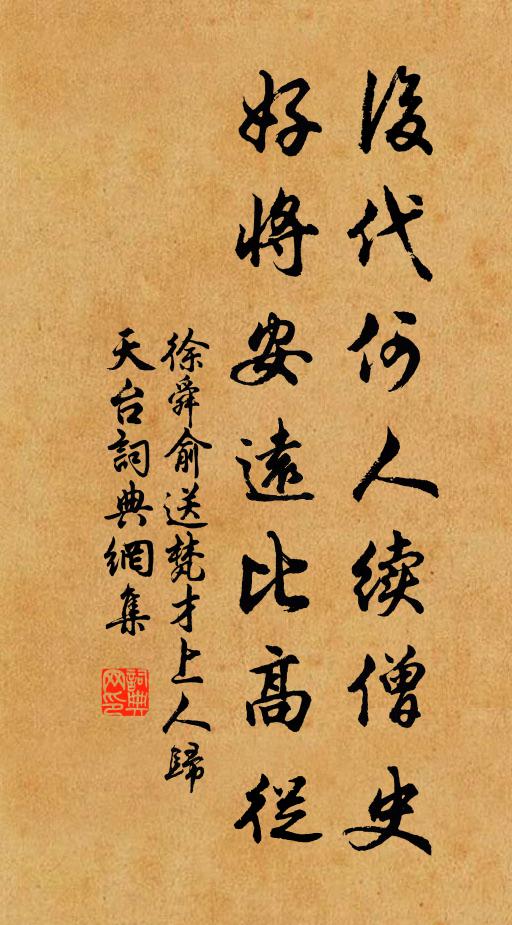 後代何人续僧史
好將安遠比高從
徐舜俞送梵才上人歸
天台詞典網集
詞典网印